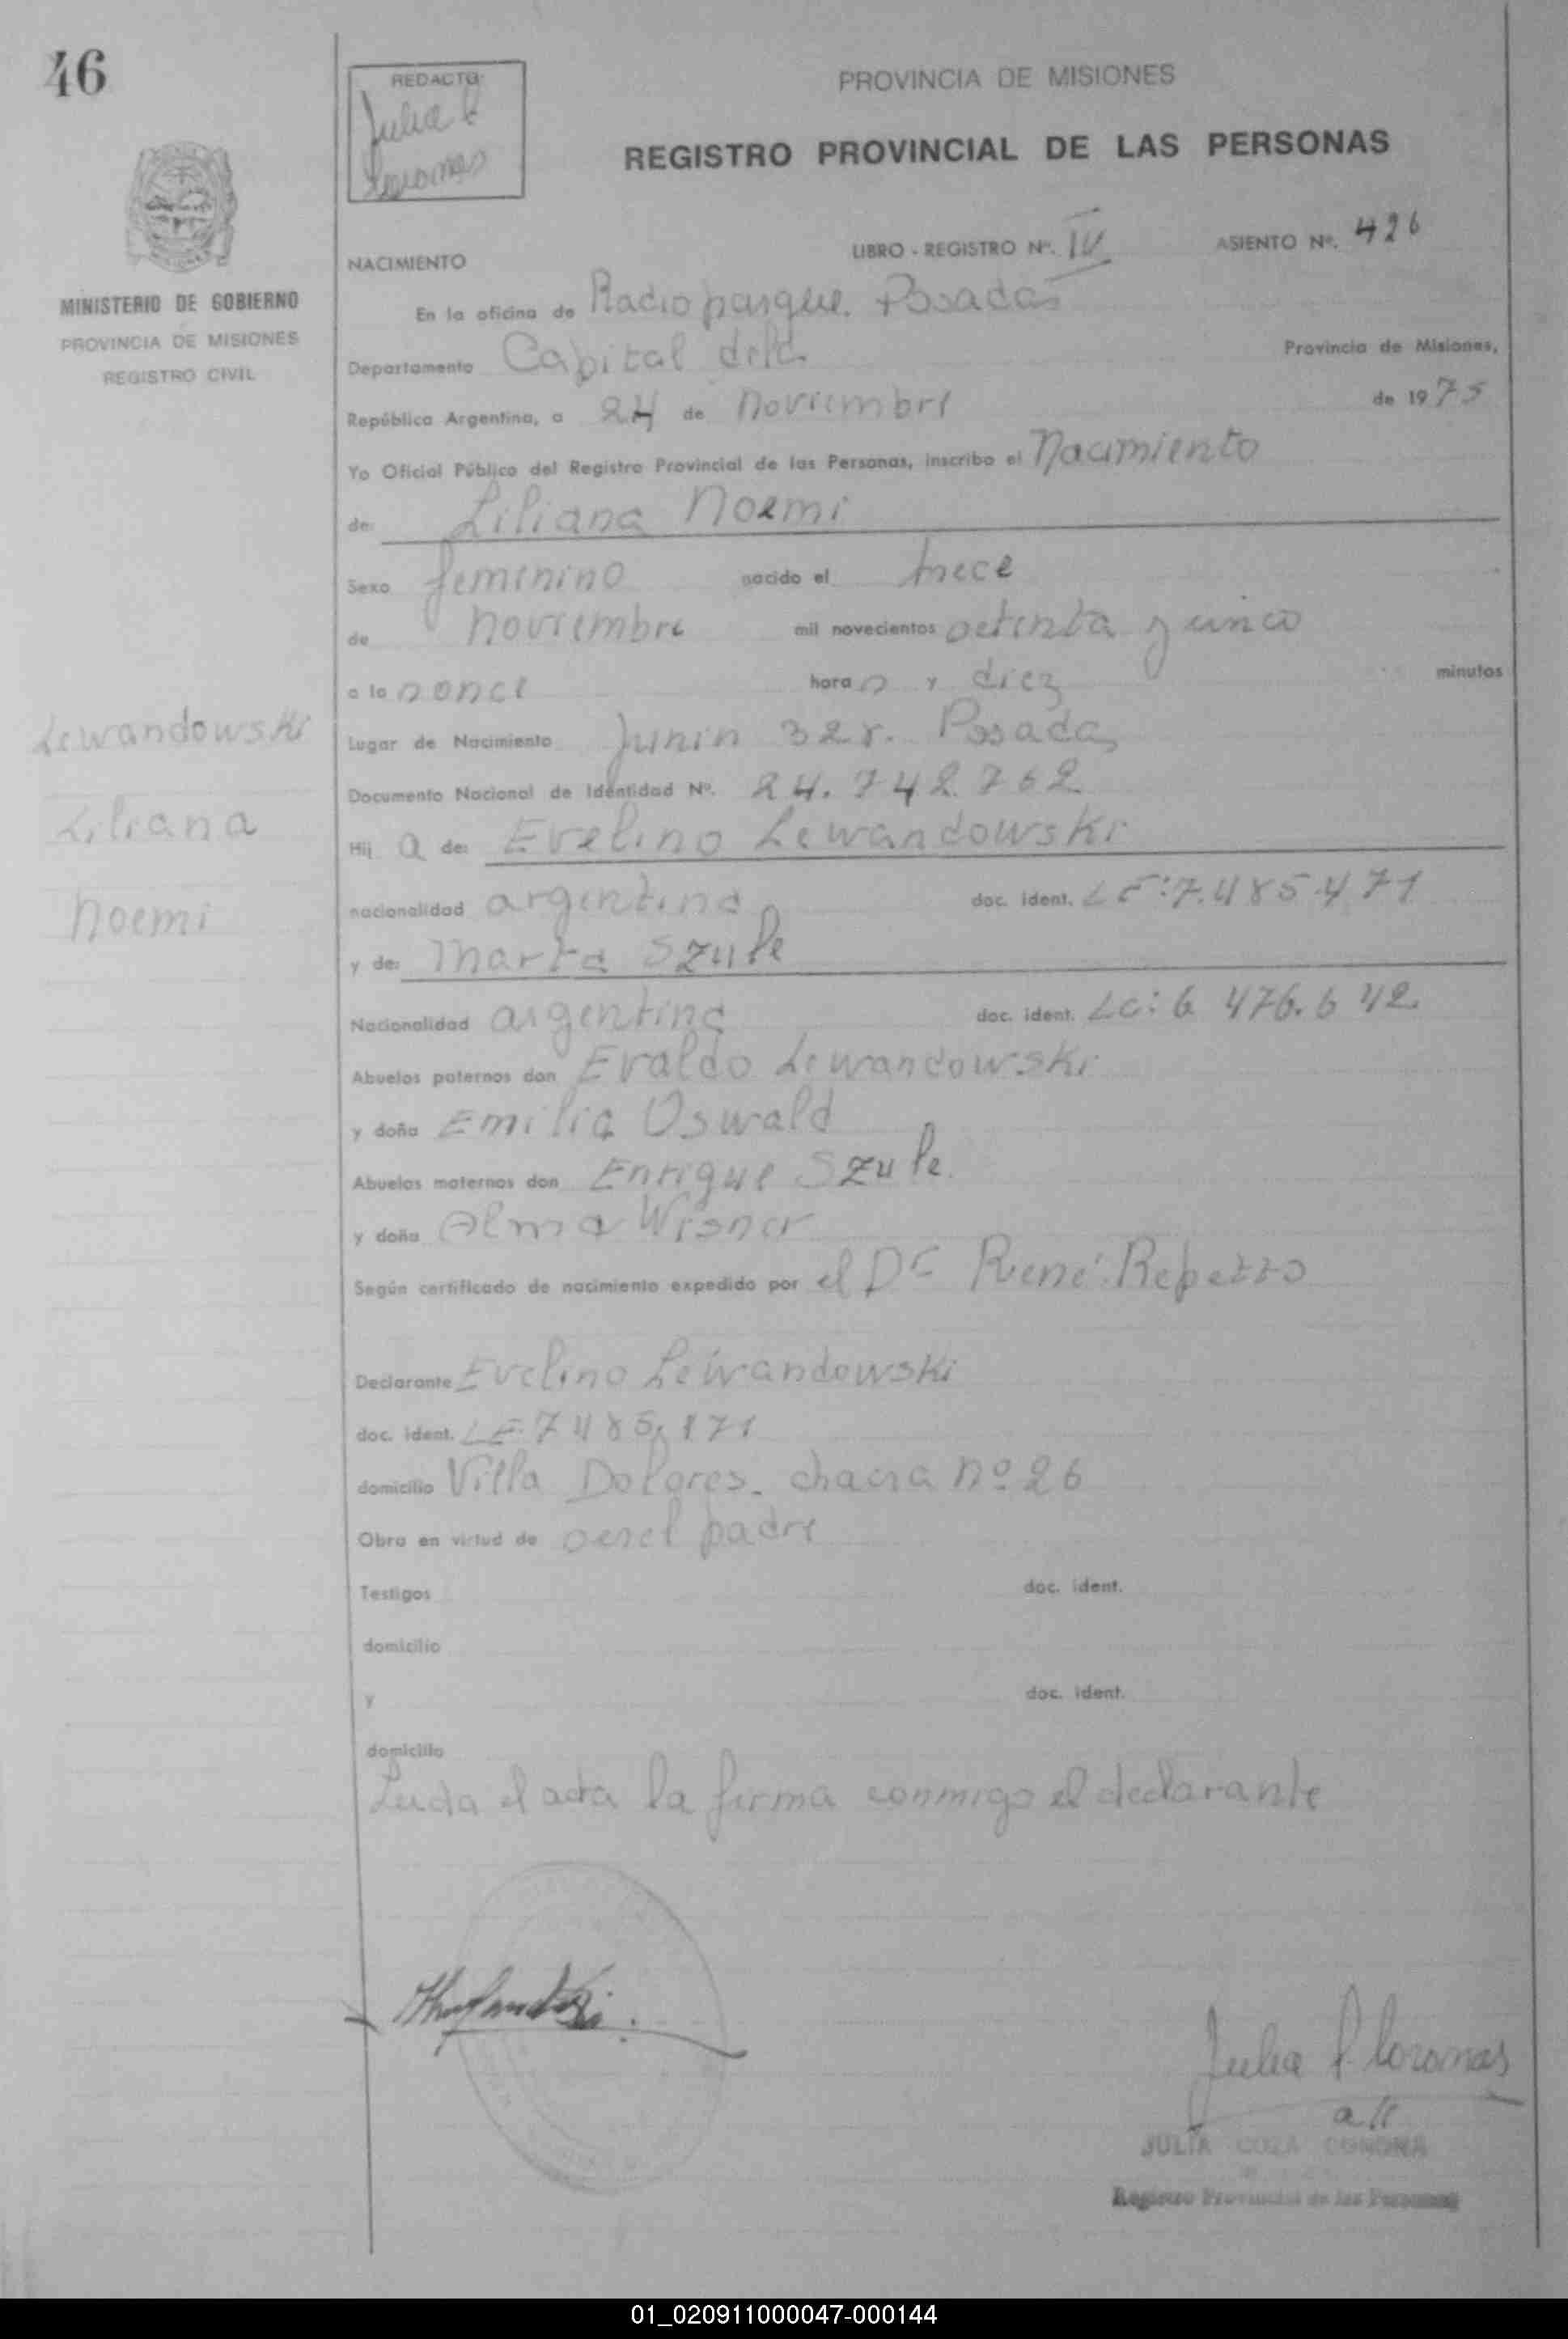 46
REDACTO:
Julia
PROVINCIA DE MISIONES
REGISTRO PROVINCIAL DE LAS PERSONAS
MINISTERIO DE GOBIERNO
PROVINCIA DE MISIONES
REGISTRO CIVIL
LIBRO - REGISTRO Nº. IV ASIENTO Nº. 426
NACIMIENTO
En la oficina de Radio parque. Posadas
Departamento Capital de la Provincia de Misiones,
República Argentina, a 24 de noviembre de 1975
Yo Oficial Público del Registro Provincial de las Personas, inscribo el Nacimiento
de: Liliana Noemi
Sexo femenino nacido el trece
de noviembre mil novecientos setenta y cinco
a la s once hora s y diez minutos
Lugar de Nacimiento Junin 328. Posadas
Documento Nacional de Identidad Nº. 24.742.762
Hij a de: Evelino Lewandowski
nacionalidad argentina doc. ident. LE:7.485.471
y de: Marta Szule
Nacionalidad argentina doc. ident. LC: 6 476.642
Abuelos paternos don Evaldo Lewandowski
y doña Emilia Oswald
Abuelos maternos don Enrique Szule.
y doña Alma Wisner
Según certificado de nacimiento expedido por el Dr René Repetto
Declarante Evelino Lewandowski
doc. ident. LE 7485.171
domicilio Villa Dolores. chacra nº 26
Obra en virtud de ser el padre
Testigos doc. ident.
domicilio
y doc. ident.
domicilio
Leida el acta la firma conmigo el declarante
Lewandowski
Liliana
Noemi
Julia
JULIA CONONA
Registro Provincial de las Personas
01_020911000047-000144